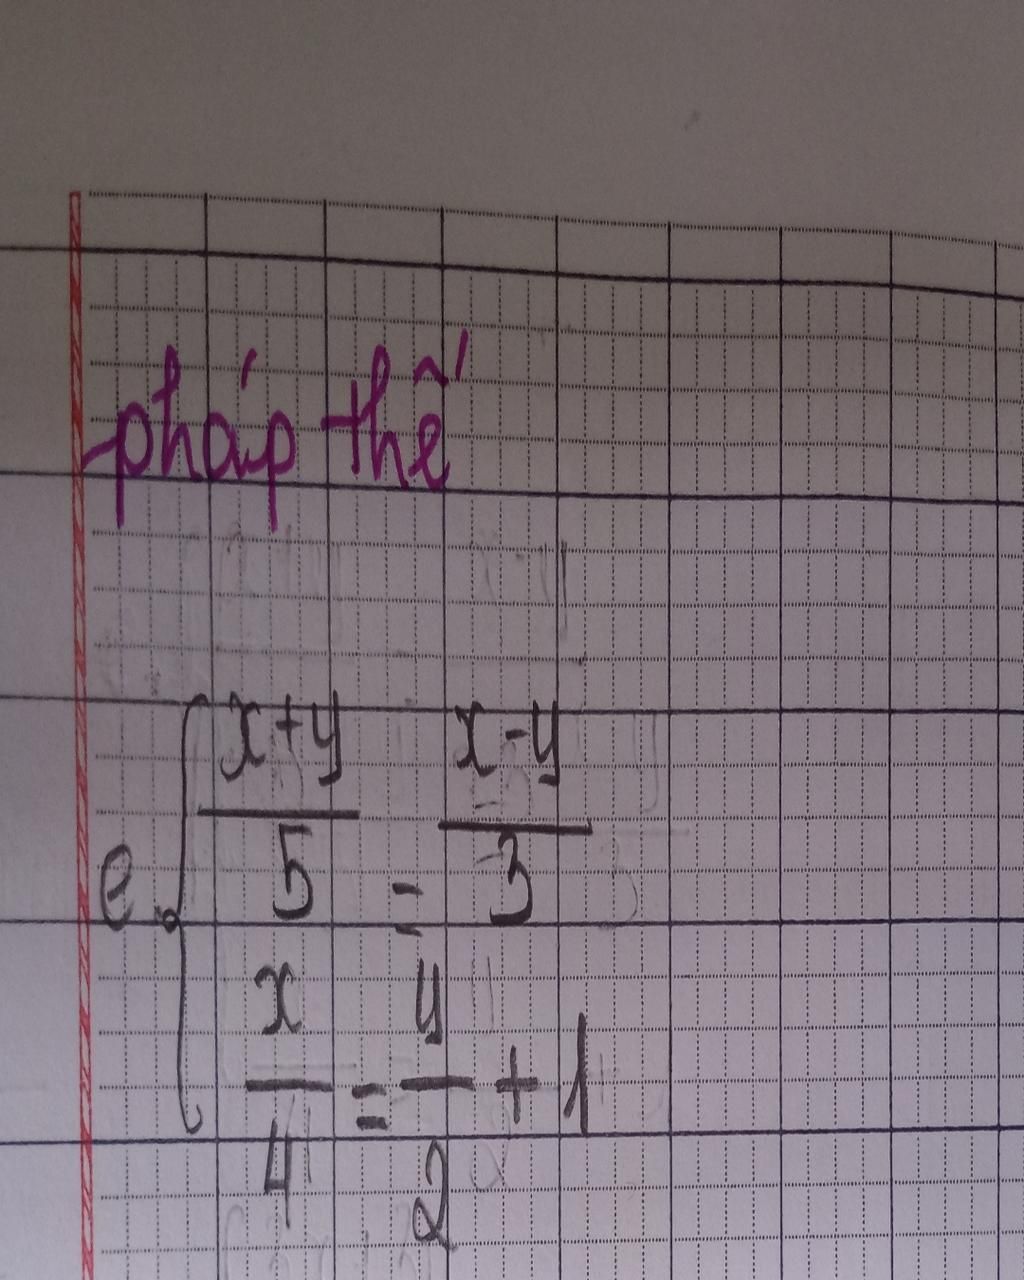 pháp thế
e. { (x+y)/5 = (x-y)/3
x/4 = y/2 + 1